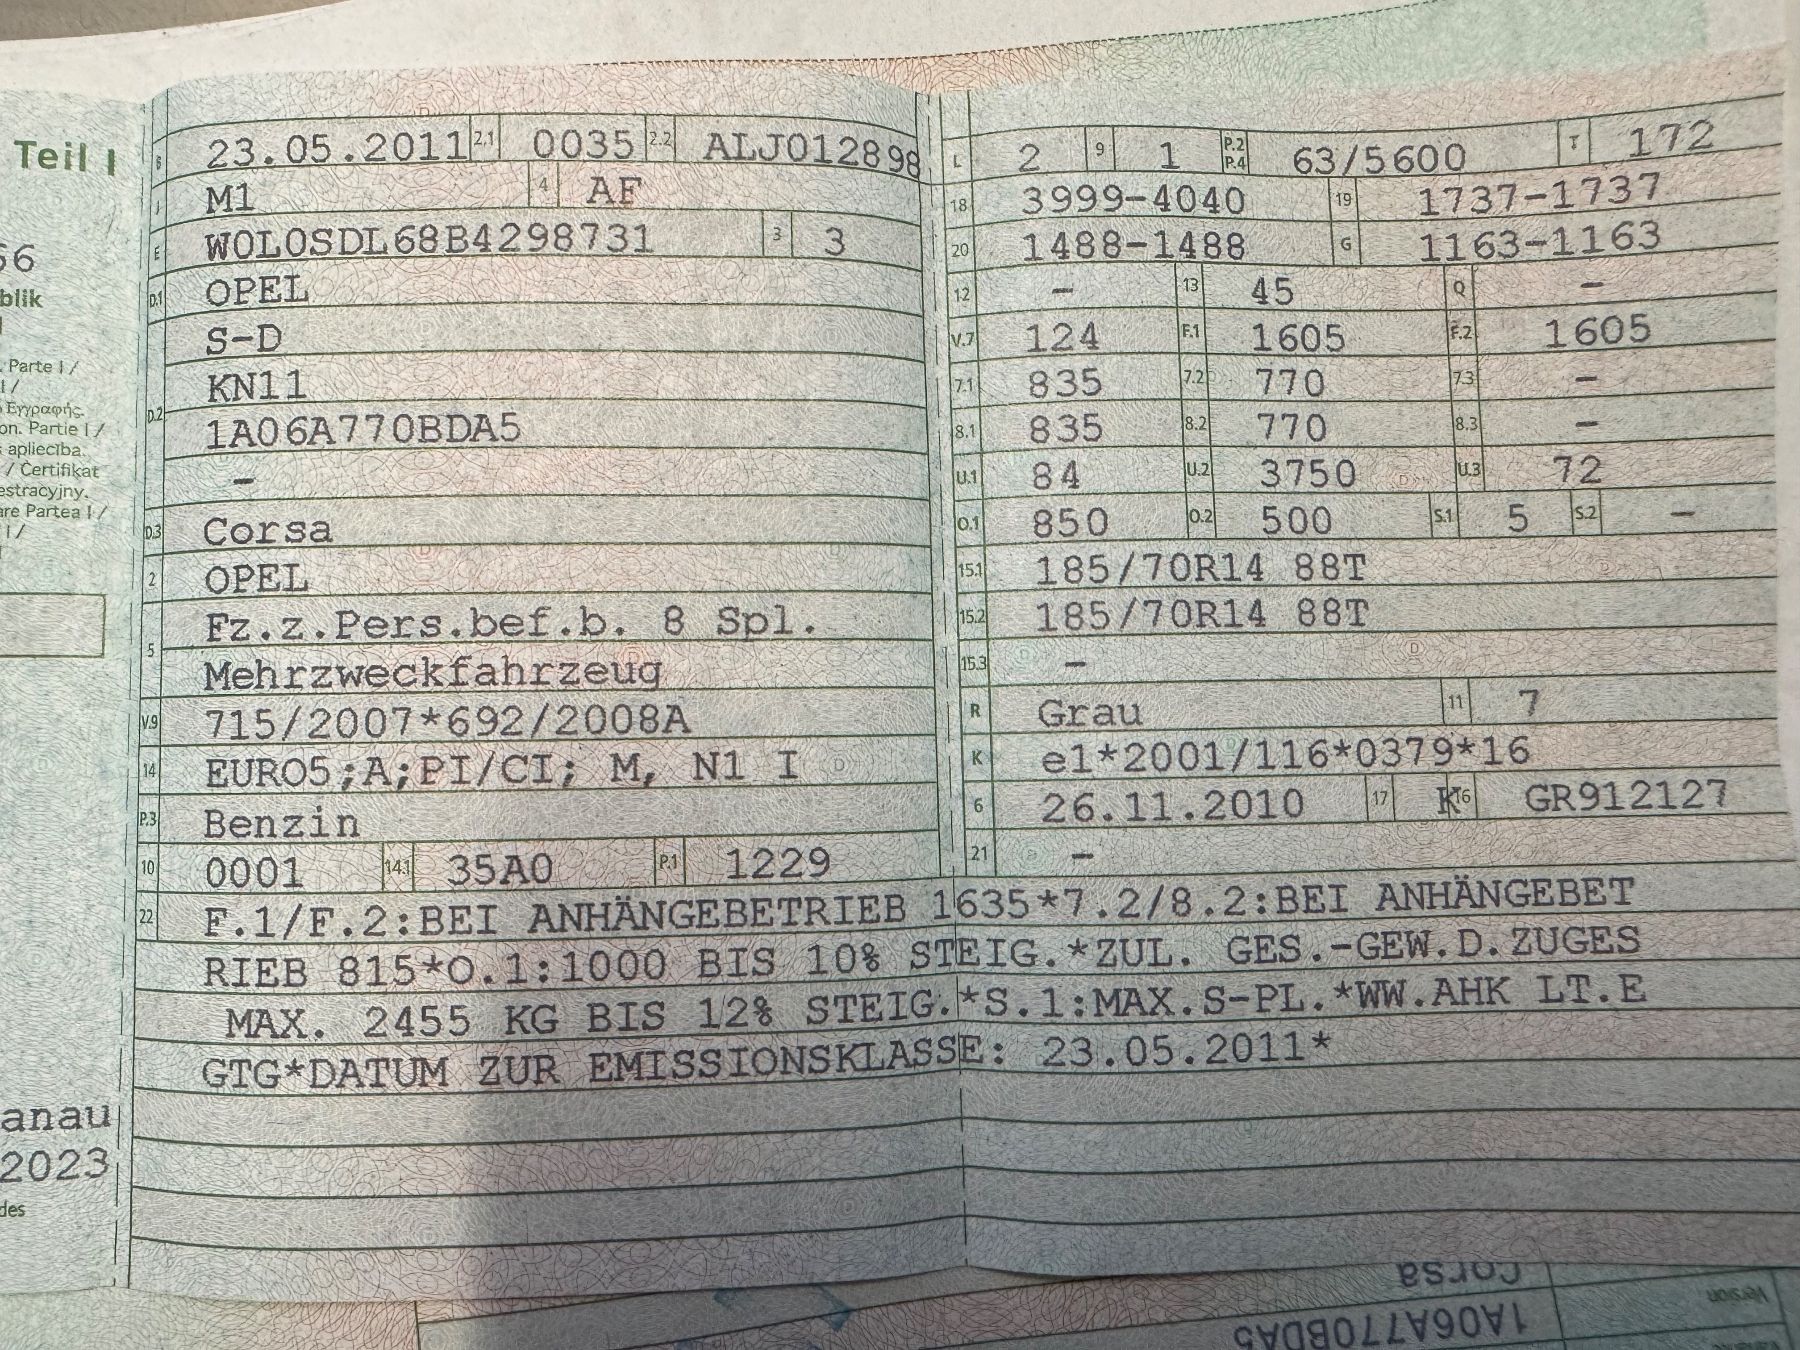 Teil I
56
blik
. Parte I /
I /
Εγγραφής.
on. Partie I /
apliecība.
/ Certifikat
estracyjny.
are Partea I /
I /
anau
2023
des
B 23.05.2011 2.1 0035 2.2 ALJ012898
J M1 4 AF
E W0L0SDL68B4298731 3 3
D.1 OPEL
S-D
KN11
D.2 1A06A770BDA5
-
D.3 Corsa
2 OPEL
Fz.z.Pers.bef.b. 8 Spl.
5 Mehrzweckfahrzeug
V.9 715/2007*692/2008A
14 EURO5;A;PI/CI; M, N1 I
P.3 Benzin
10 0001 14.1 35A0 P.1 1229
L 2 9 1 P.2 P.4 63/5600 T 172
18 3999-4040 19 1737-1737
20 1488-1488 G 1163-1163
12 - 13 45 Q -
V.7 124 F.1 1605 F.2 1605
7.1 835 7.2 770 7.3 -
8.1 835 8.2 770 8.3 -
U.1 84 U.2 3750 U.3 72
O.1 850 O.2 500 S.1 5 S.2 -
15.1 185/70R14 88T
15.2 185/70R14 88T
15.3 -
R Grau 11 7
K e1*2001/116*0379*16
6 26.11.2010 17 K 16 GR912127
21 -
22 F.1/F.2:BEI ANHÄNGEBETRIEB 1635*7.2/8.2:BEI ANHÄNGEBET
RIEB 815*O.1:1000 BIS 10% STEIG.*ZUL. GES.-GEW.D.ZUGES
MAX. 2455 KG BIS 12% STEIG.*S.1:MAX.S-PL.*WW.AHK LT.E
GTG*DATUM ZUR EMISSIONSKLASSE: 23.05.2011*
Corsa
1A06A770BDA5
Version